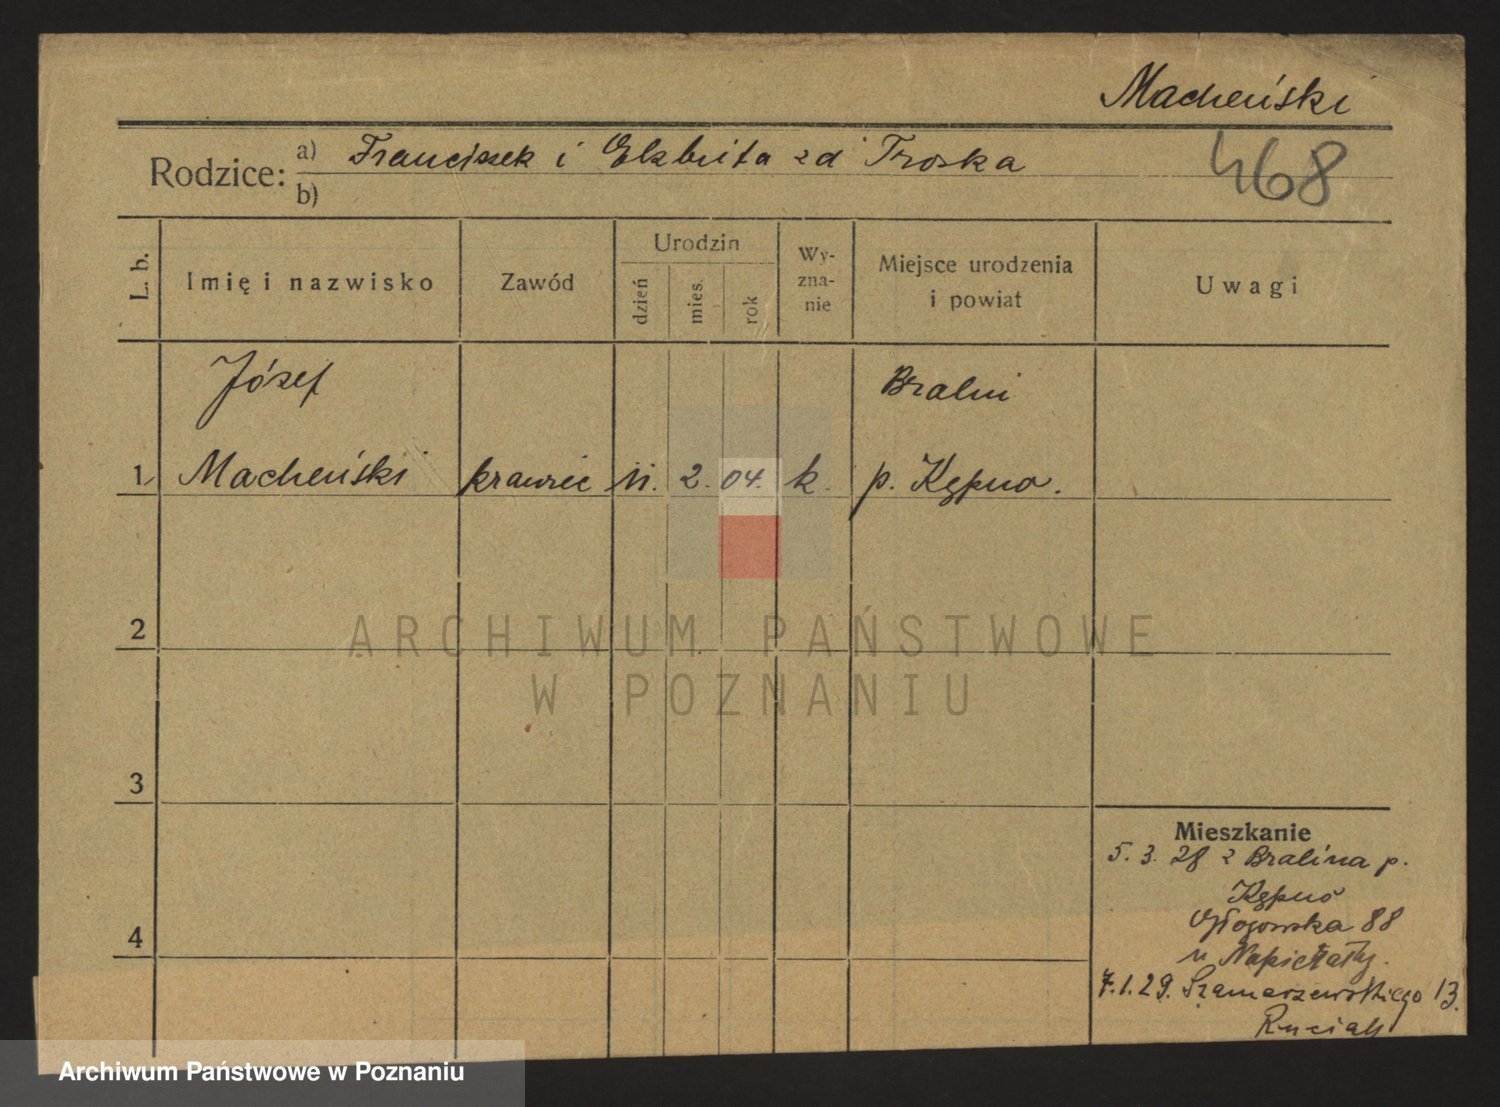 Macheński
468
Rodzice: a) Franciszek i Elżbieta zd Troska
b)
L. b.
Imię i nazwisko
Zawód
Urodzin
dzień
mies.
rok
Wy-
zna-
nie
Miejsce urodzenia
i powiat
Uwagi
Józef
Bralin
1 Macheński krawiec 11. 2. 04. k. p. Kępno.
2
ARCHIWUM PAŃSTWOWE
W POZNANIU
3
Mieszkanie
5. 3. 28 z Bralina p.
Kępno
4
Głogowska 88
u Napierały.
7.1.29. Szamarzewskiego 13.
Archiwum Państwowe w Poznaniu